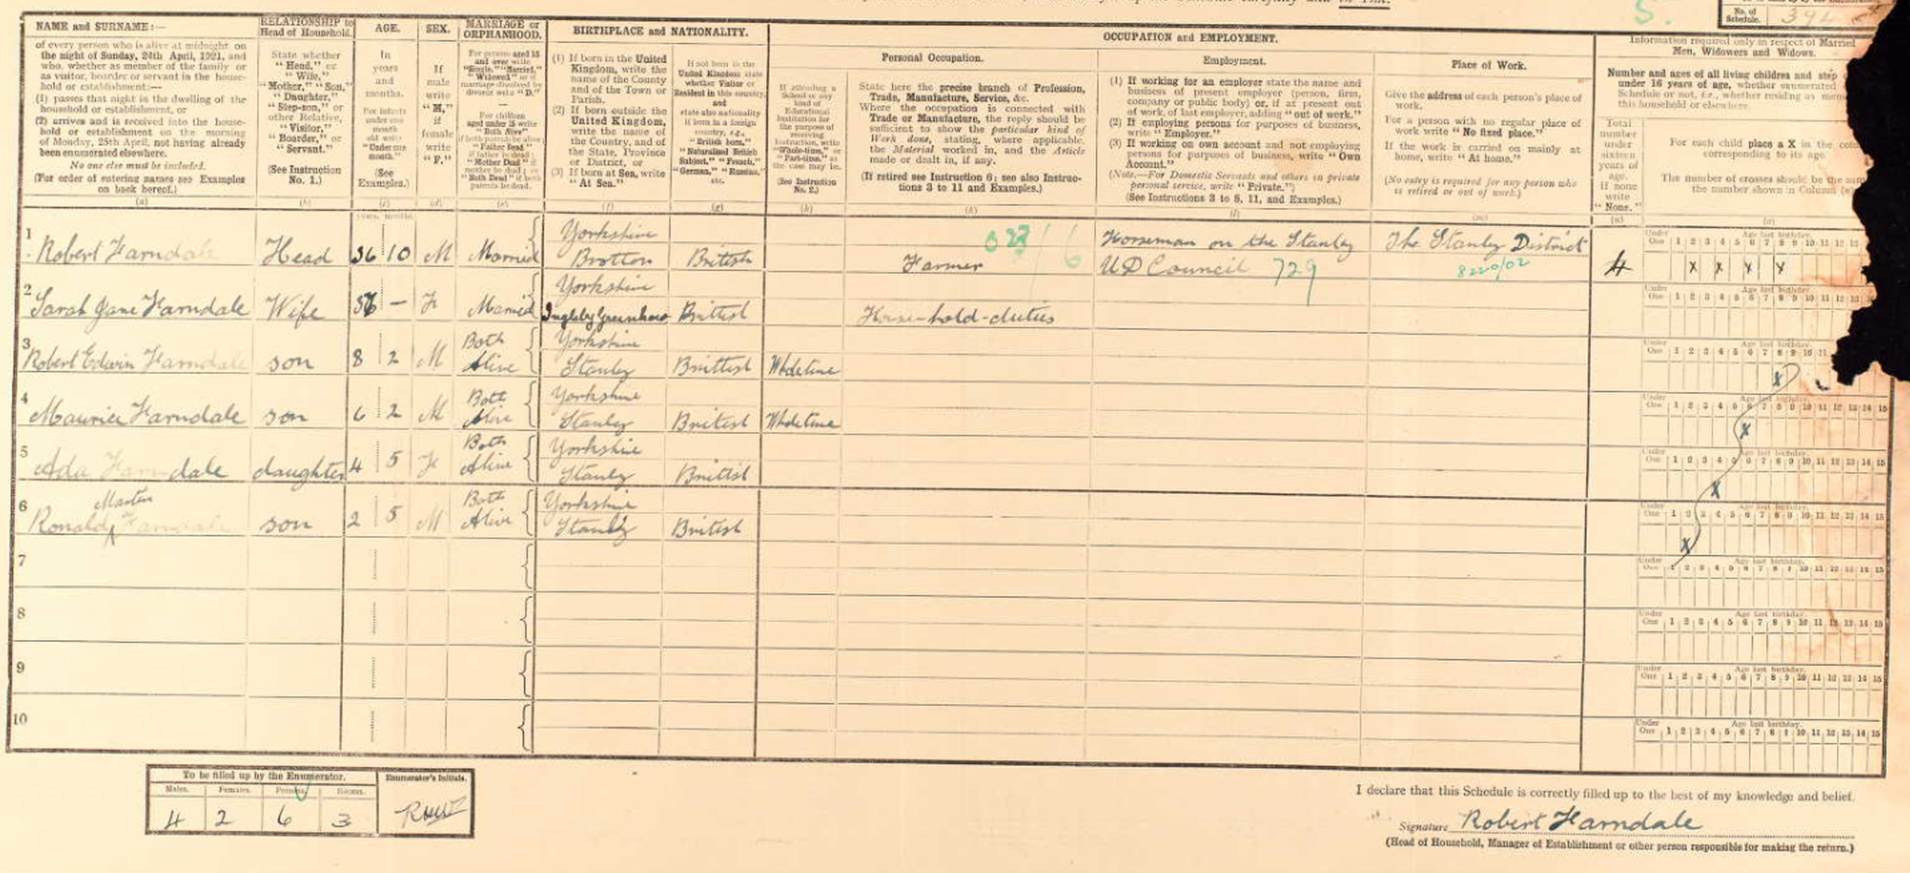 No. of Schedule. 394
NAME and SURNAME:—
of every person who is alive at midnight on
the night of Sunday, 24th April, 1921, and
who, whether as member of the family or
as visitor, boarder or servant in the house-
hold or establishment:—
(1) passes that night in the dwelling of the
household or establishment, or
(2) arrives and is received into the house-
hold or establishment on the morning
of Monday, 25th April, not having already
been enumerated elsewhere.
No one else must be included.
(For order of entering names see Examples
on back hereof.)
(a)
RELATIONSHIP to
Head of Household.
State whether
"Head," or
"Wife,"
"Mother," "Son,"
"Daughter,"
"Step-son," or
other Relative,
"Visitor,"
"Boarder," or
"Servant."
(See Instruction
No. 1.)
(b)
AGE.
In
years
and
months.
For infants
under one
month
old write
"Under one
month."
(See
Examples.)
(c)
SEX.
If
male
write
"M,"
if
female
write
"F."
(d)
MARRIAGE or
ORPHANHOOD.
BIRTHPLACE and NATIONALITY.
(1) If born in the United
Kingdom, write the
name of the County
and of the Town or
Parish.
(2) If born outside the
United Kingdom,
write the name of
the Country, and of
the State, Province
or District, or
(3) If born at Sea, write
"At Sea."
(f)
(g)
(h)
OCCUPATION and EMPLOYMENT.
Personal Occupation.
State here the precise branch of Profession,
Trade, Manufacture, Service, &c.
Where the occupation is connected with
Trade or Manufacture, the reply should be
sufficient to show the particular kind of
Work done, stating, where applicable,
the Material worked in, and the Article
made or dealt in, if any.
(If retired see Instruction 6; see also Instruc-
tions 3 to 11 and Examples.)
(k)
Employment.
(1) If working for an employer state the name and
business of present employer (person, firm,
company or public body) or, if at present out
of work, of last employer, adding "out of work."
(2) If employing persons for purposes of business,
write "Employer."
(3) If working on own account and not employing
persons for purposes of business, write "Own
Account."
(Note.—For Domestic Servants and others in private
personal service, write "Private.")
(See Instructions 3 to 8, 11, and Examples.)
(l)
Place of Work.
Give the address of each person's place of
work.
For a person with no regular place of
work write "No fixed place."
If the work is carried on mainly at
home, write "At home."
(No entry is required for any person who
is retired or out of work.)
(m)
Information required only in respect of Married
Men, Widowers and Widows.
Number and ages of all living children and step
under 16 years of age, whether enumerated
Schedule or not, i.e., whether residing as mem
this household or elsewhere.
Total
number
under
sixteen
years of
age.
If none
write
"None."
(n)
For each child place a X in the colu
corresponding to its age
The number of crosses should be the sam
the number shown in Column (n)
(o)
1 Robert Farndale Head 36 10 M Married Yorkshire Brotton British Farmer Horseman on the Stanley U D Council 729 The Stanley District 8220/02 4 X X X X
2 Sarah Jane Farndale Wife 36 — F Married Yorkshire Ingleby Greenhow British House-hold-duties
3 Robert Edwin Farndale son 8 2 M Both Alive Yorkshire Stanley Brittish Wholetime X
4 Maurice Farndale son 6 2 M Both Alive Yorkshire Stanley British Wholetime X
5 Ada Farndale daughter 4 5 F Both Alive Yorkshire Stanley British X
6 Ronald Martin Farndale son 2 5 M Both Alive Yorkshire Stanley British X
7
8
9
10
To be filled up by the Enumerator.
Males. Females. Persons. Rooms.
4 2 6 3
Enumerator's Initials.
I declare that this Schedule is correctly filled up to the best of my knowledge and belief.
Signature Robert Farndale
(Head of Household, Manager of Establishment or other person responsible for making the return.)